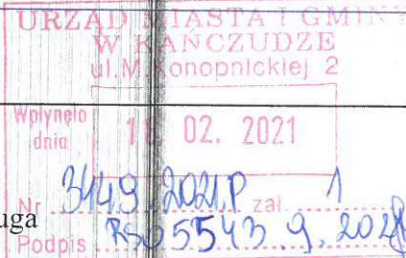 URZĄD MIASTA I GMINY
W KAŃCZUDZE
ul. M. Konopnickiej 2
Wpłynęło
dnia
02. 2021
Nr 3449.2021.P zał. 1
uga
Podpis